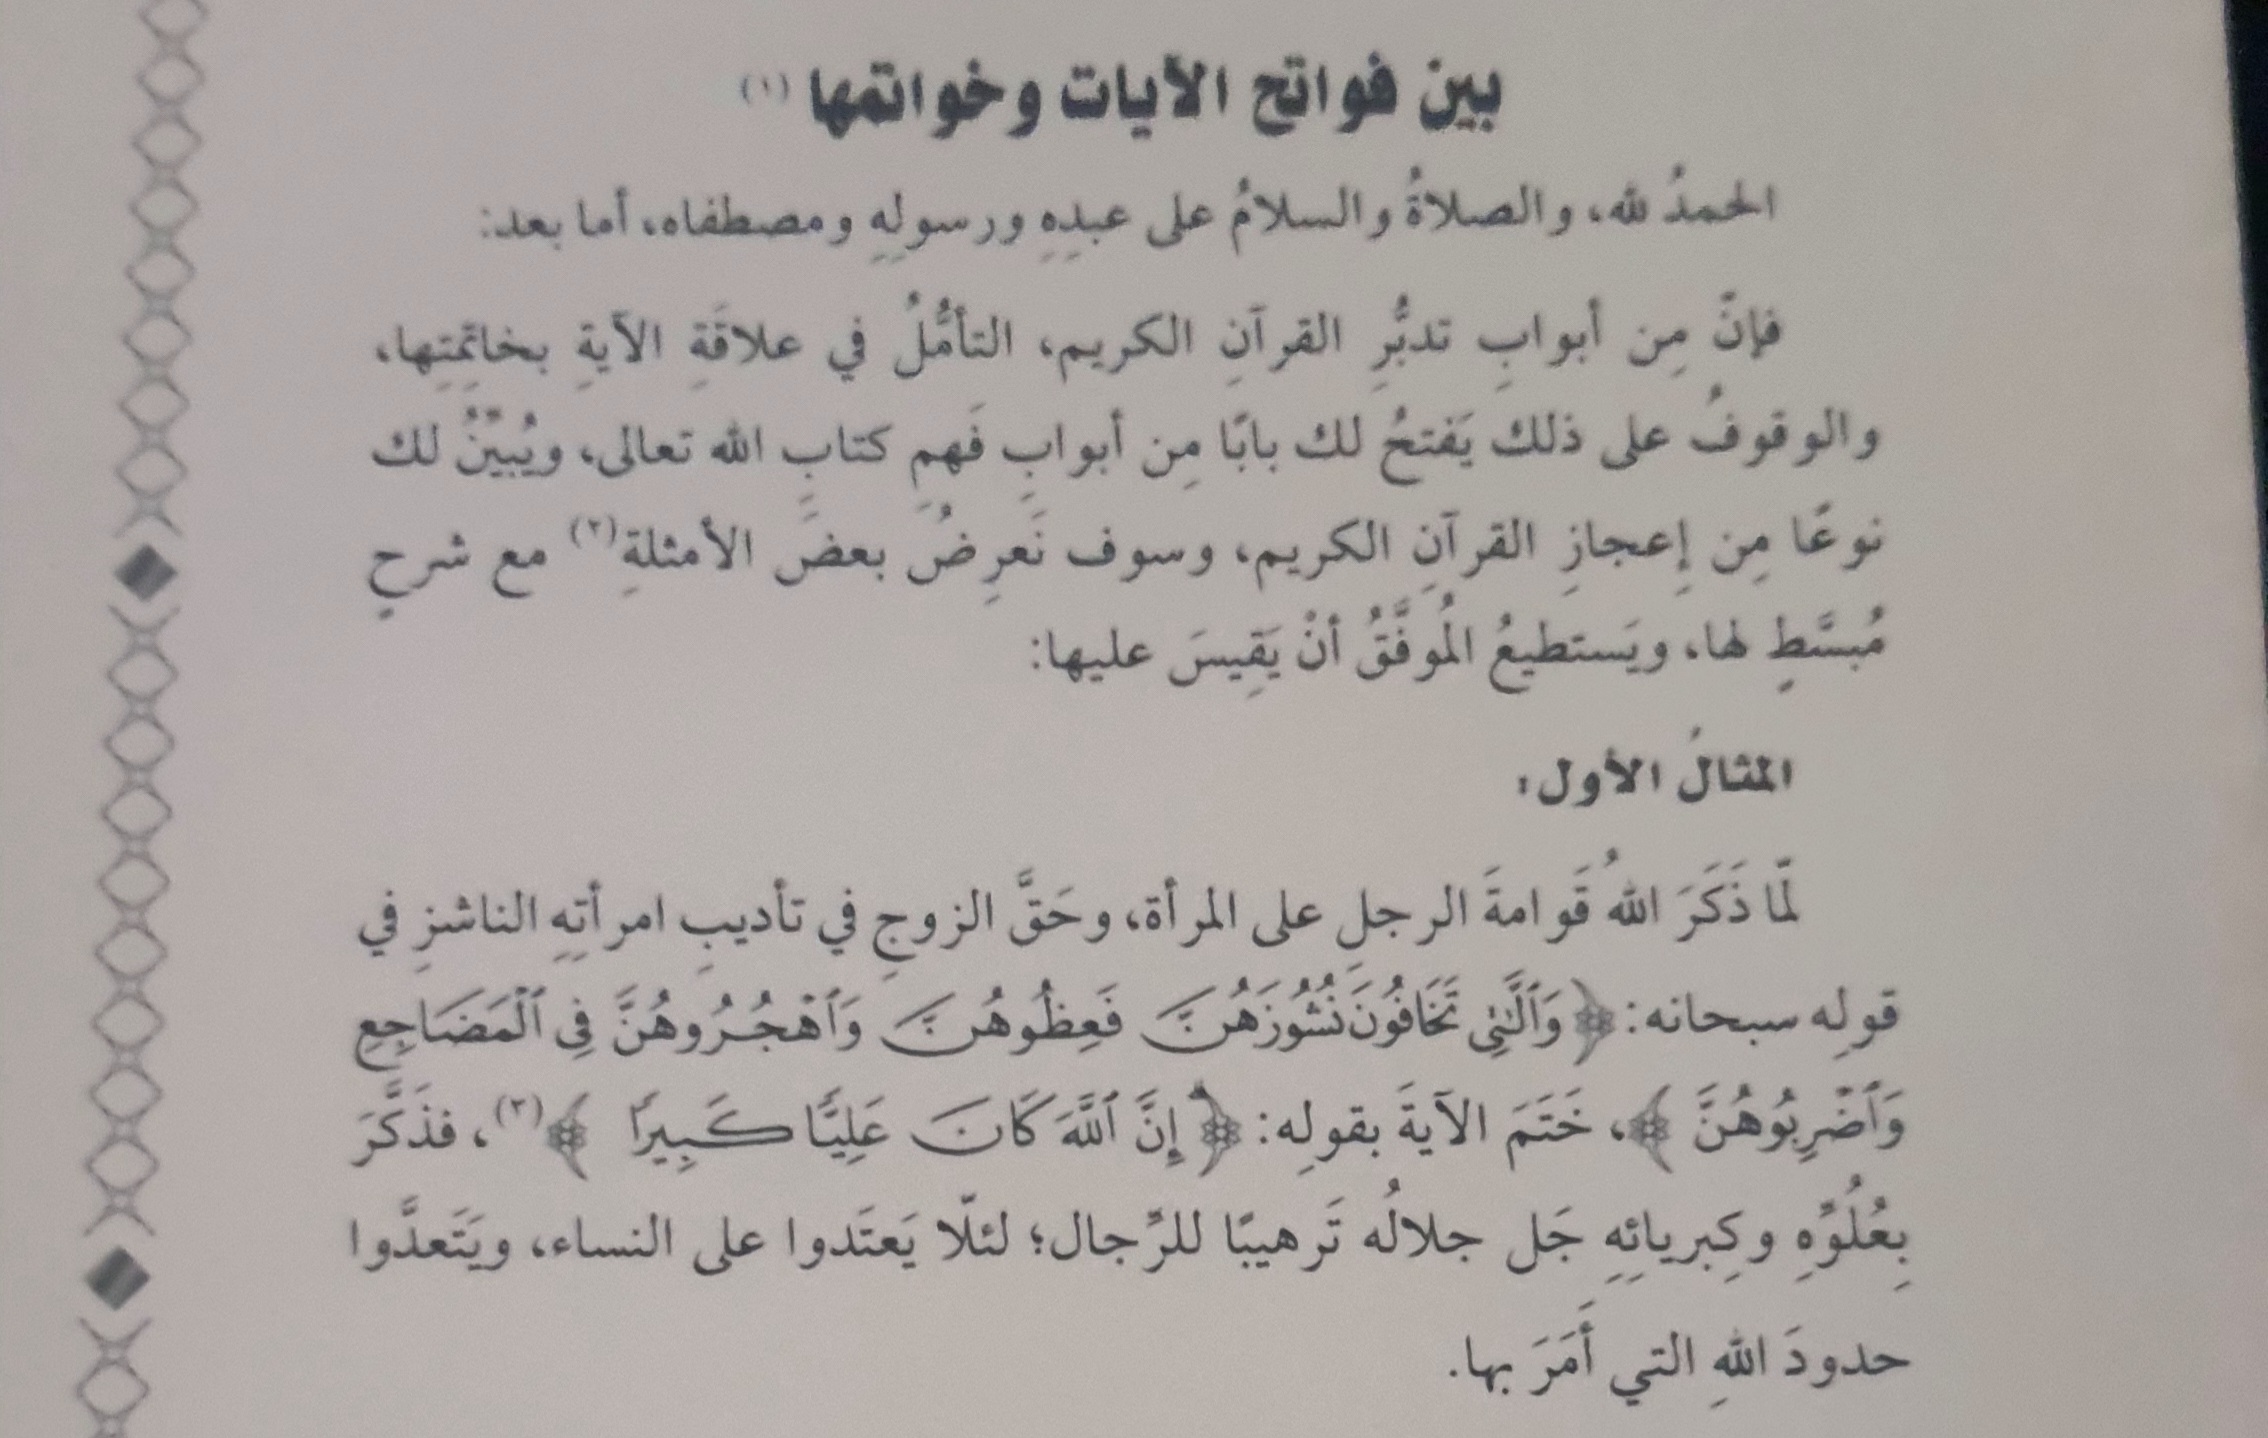 بين فواتح الآيات وخواتمها (١)
الحمدُ لله، والصلاةُ والسلامُ على عبدِهِ ورسولِهِ ومصطفاه، أما بعد:
فإنّ مِن أبوابِ تدبُّرِ القرآنِ الكريم، التأمُّلُ في علاقَةِ الآيةِ بخاتِمَتِها،
والوقوفُ على ذلك يَفتحُ لك بابًا مِن أبوابِ فَهمِ كتابِ الله تعالى، ويُبيّنُ لك
نوعًا مِن إعجازِ القرآنِ الكريم، وسوف نَعرِضُ بعضَ الأمثلةِ(٢) مع شرحٍ
مُبسَّطٍ لها، ويَستطيعُ المُوفَّقُ أنْ يَقِيسَ عليها:
المثالُ الأول:
لمّا ذَكَرَ اللهُ قَوامةَ الرجلِ على المرأة، وحَقَّ الزوجِ في تأديبِ امرأتِهِ الناشزِ في
قولِه سبحانه: ﴿وَٱلَّٰتِي تَخَافُونَ نُشُوزَهُنَّ فَعِظُوهُنَّ وَٱهْجُرُوهُنَّ فِي ٱلْمَضَاجِعِ
وَٱضْرِبُوهُنَّ﴾، خَتَمَ الآيةَ بقولِه: ﴿إِنَّ ٱللَّهَ كَانَ عَلِيًّا كَبِيرًا﴾(٣)، فذَكَّرَ
بِعُلُوِّهِ وكِبريائِهِ جَل جلالُه تَرهيبًا للرِّجال؛ لئلّا يَعتَدوا على النساء، ويَتَعدَّوا
حدودَ اللهِ التي أَمَرَ بها.